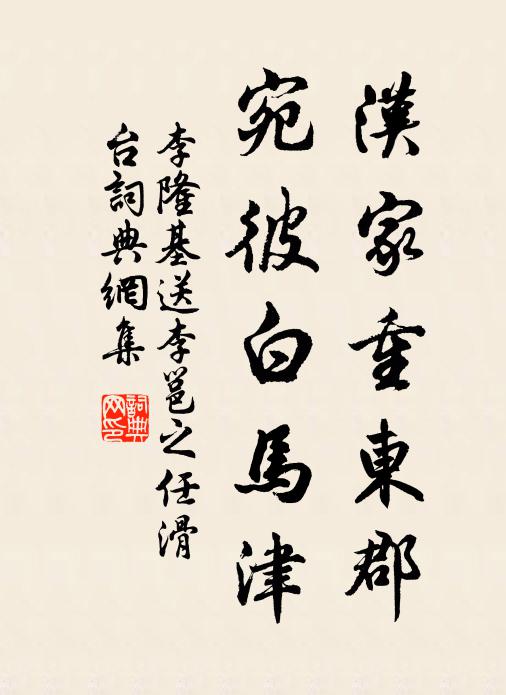 漢家重東郡
宛彼白馬津
李隆基送李邕之任滑
台詞典網集
詞典網印